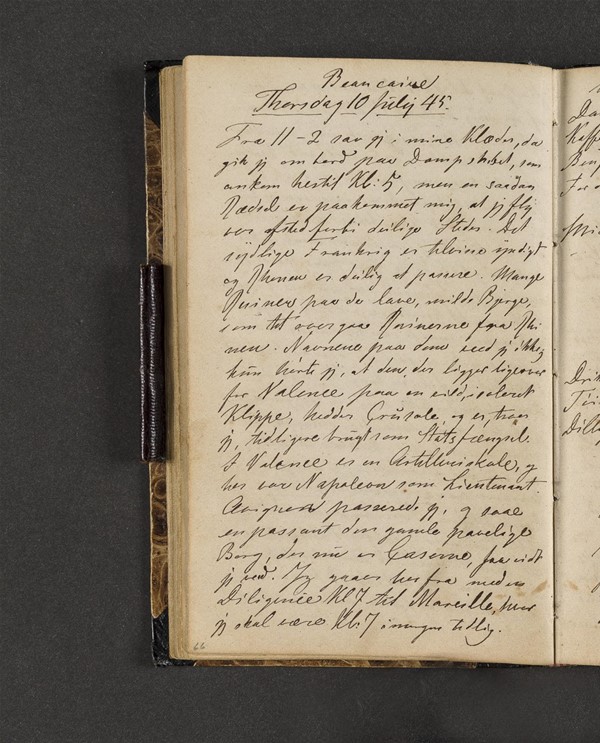 Beaucaire
Thorsdag 10 July 45.
Fra 11-2 sov jg i mine Klæder, da
gik jg om bord paa Dampskibet, som
ankom hertil Kl: 5, men en saadan
Rædsel er paakommet mig, at jg fly
ver afsted forbi deilige Steder. Det
sydlige Frankrig er yndigt
og Rhonen er deilig at passere. Mange
Ruiner paa de lave, milde Bjerge,
som til overgaa Ruinerne fra Rhi
nen. Navnene paa dem veed jg ikke,
kun hørte jg, at den, der ligger ligeover
for Valence paa en vild, isoleret
Klippe, hedder Crusole, og er, troer
jg, tidligere brugt som Statsfængsel.
I Valence er en Artilleriskole, og
her var Napoleon som Lieutenant.
Avignon passerede jg, og saae
en passant den gamle pavelige
Borg, der nu er Caserne, saavidt
jg veed. Jg gaaer herfra med en
Diligence Kl 7 til Marseille, hvor
jg skal være Kl: 7 imorgen tidlig.
66
Da
Kaff
For